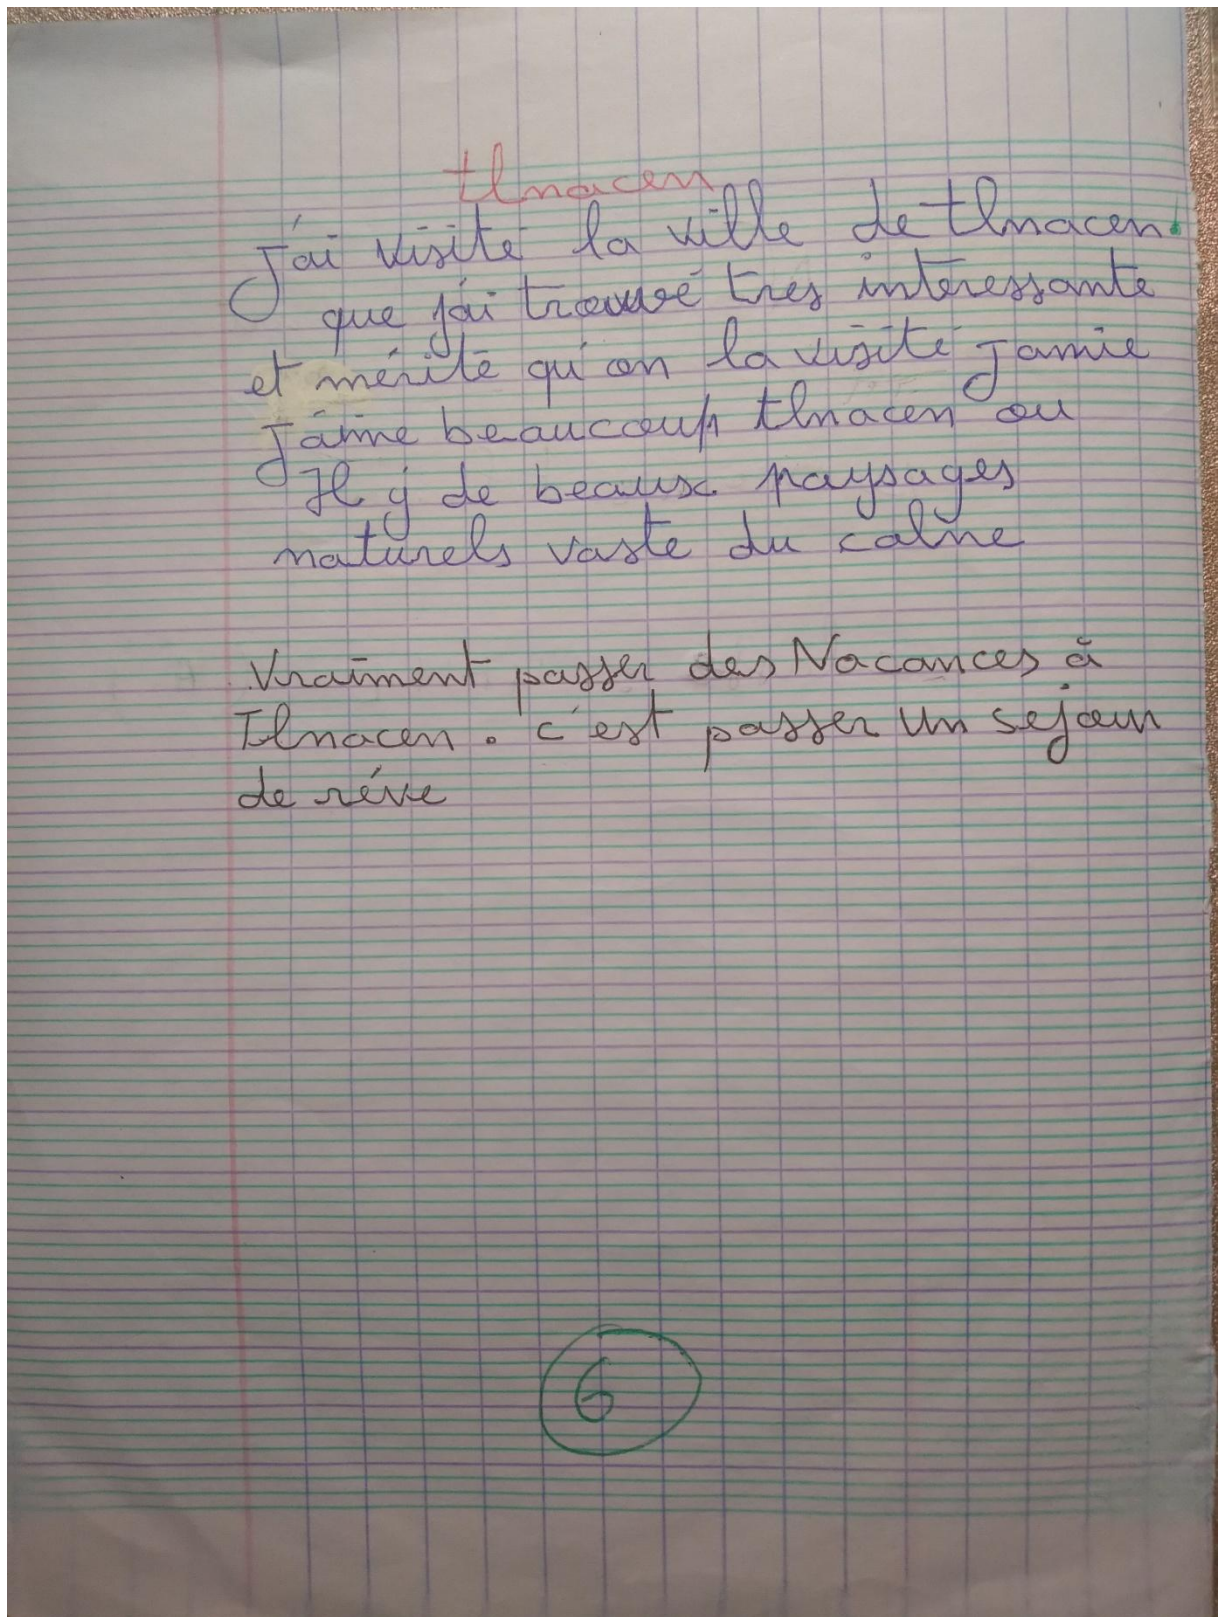 tlmacen
J'ai visité la ville de tlmacen.
que j'ai trouvé tres intéressante
et mérité qu'on la visité jamie
J'aime beaucoup tlmacen ou
Il y de beaux paysages
naturels vaste du calme
Vraiment passer des Vacances à
Tlmacen. c'est passer un sejour
de réve
6